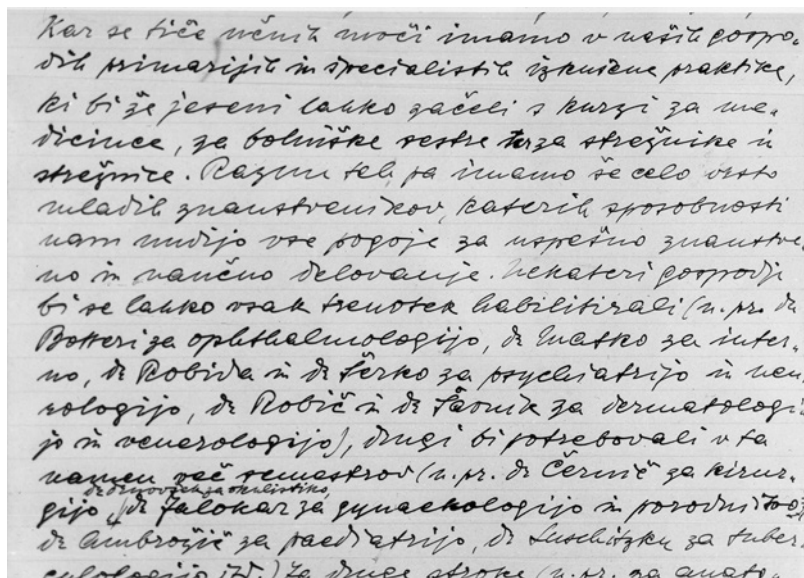 Kar se tiče učnih moči imamo v naših gospo-
dih primarijih in specialistih izkušene praktike,
ki bi že jeseni lahko začeli s kurzi za me-
dicince, za bolniške sestre ter za strežnike in
strežnice. Razun teh pa imamo še celo vrsto
mladih znanstvenikov, katerih sposobnosti
nam nudijo vse pogoje za uspešno znanstve-
no in naučno delovanje. Nekateri gospodje
bi se lahko vsak trenotek habilitirali (n. pr. dr
Botteri za ophthalmologijo, dr Matko za inter-
no, dr Robida in dr Šerko za psychiatrijo in neu-
rologijo, dr Robič in dr Šavnik za dermatologi-
jo in venerologijo), drugi bi potrebovali v ta
namen več semestrov (n. pr. dr Černič za kirur-
za okulistiko,
gijo, dr Zalokar za gynaekologijo in
dr Ambrožič za paediatrijo, dr Luschitzky za tuber-
culologijo itd.) Za druge stroke (n. pr. za anato-